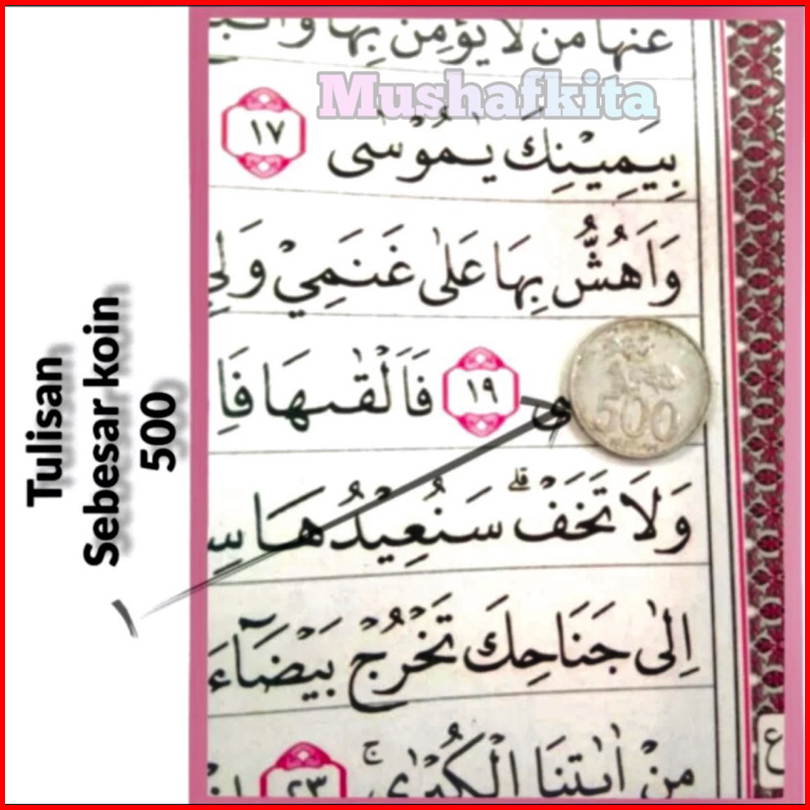 عنها من لا يؤمن بها
Mushafkita
بِيَمِيْنِكَ يٰمُوْسٰى ١٧
وَاَهُشُّ بِهَا عَلٰى غَنَمِيْ وَلِيَ
ى ١٩ فَاَلْقٰىهَا فَاِ
500
وَلَا تَخَفْۗ سَنُعِيْدُهَا سِ
اِلٰى جَنَاحِكَ تَخْرُجْ بَيْضَاۤءَ
مِنْ اٰيٰتِنَا الْكُبْرٰىۚ ٢٣
ع
Tulisan
Sebesar koin
500